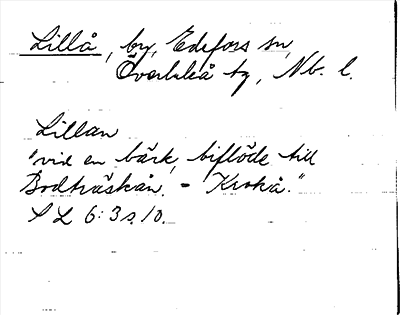 Lillå, by, Edefors sn,
Överluleå tg, Nb. l.
Lillan
"vid en bäck, biflöde till
Bodträskån. - Krokå."
S L 6:3 s. 10.